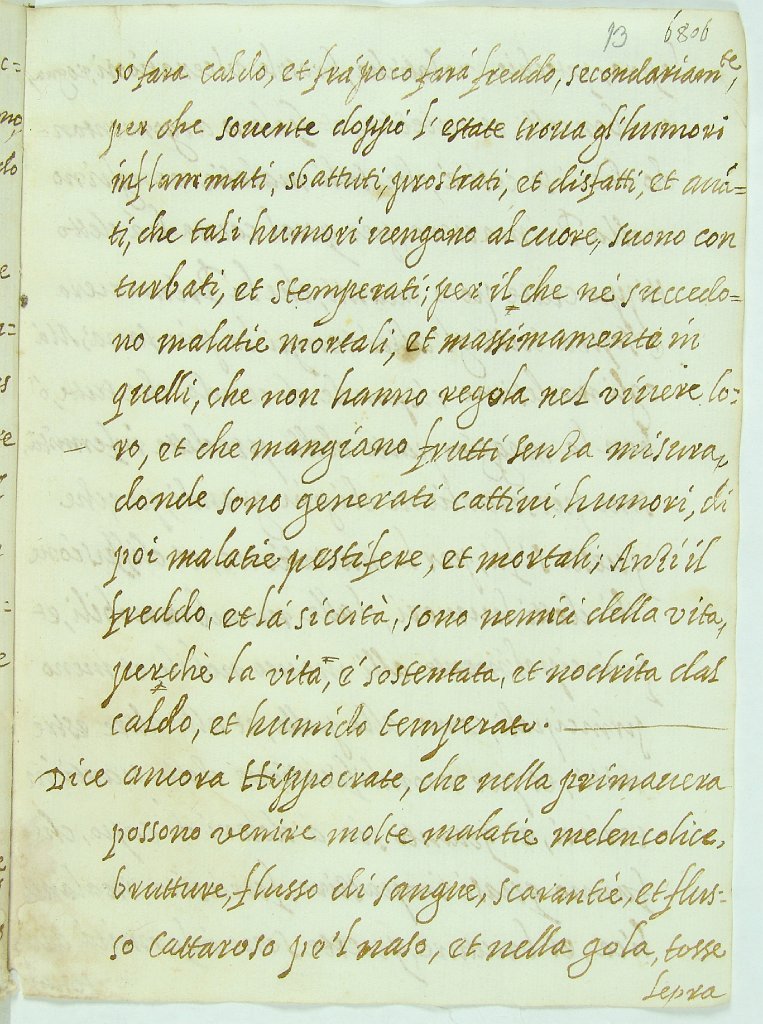 13 6806
so fara caldo, et frá poco fará freddo, secondariamte,
per che souente doppó l'estate troua gl'humori
inflammati, sbattuti, prostrati, et disfatti, et auá=
ti, che tali humori uengono al cuore, suono con
turbati, et stemperati; per il che né succedo=
no malatie mortali, et massimamente in
quelli, che non hanno regola nel viuere lo=
ro, et che mangiano frutti senza misura,
donde sono generati cattiui humori, di
poi malatie pestifere, et mortali; Anzi il
freddo, et lá siccità, sono nemici della vita,
perchè la vita, é sostentata, et nodrita dal
caldo, et humido temperato.
Dice ancora Hippocrate, che nella primauera
possono venire molte malatie melencolice,
brutture, flusso di sangue, scarantie, et flus=
so cattaroso pe'l naso, et nella gola, tosse
lepra